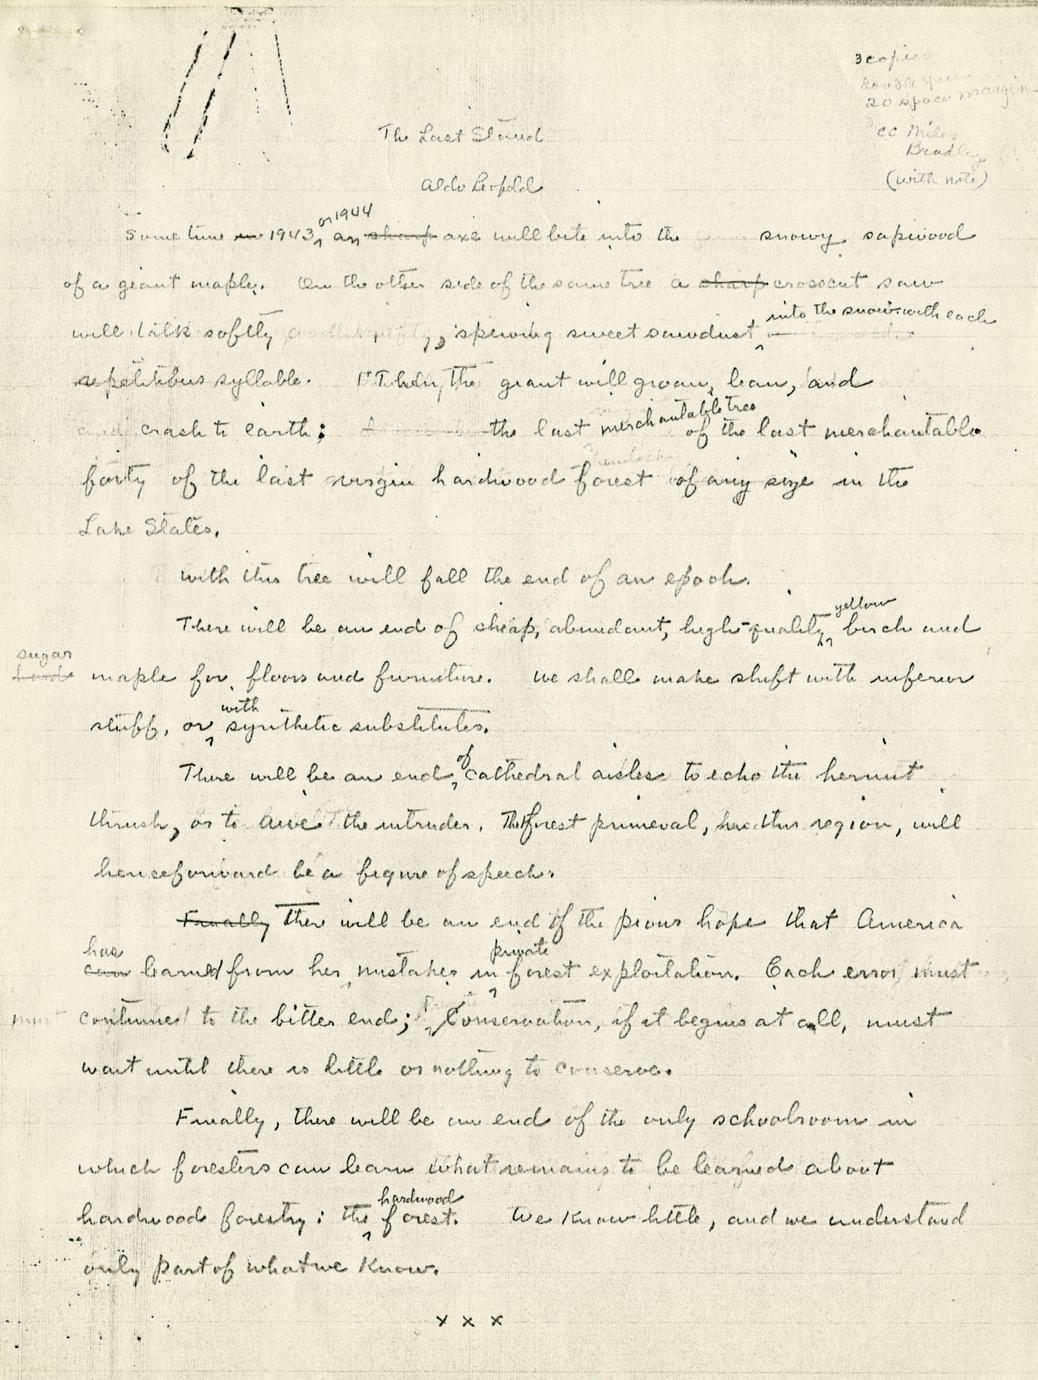 3 copies
double space
20 space margin
cc Miles
Bradley
(with note)
The Last Stand
Aldo Leopold
or 1944
Some time in 1943, an sharp axe will bite into the snowy sapwood
of a giant maple. On the other side of the same tree a sharp crosscut saw
into the snow with each
will talk softly, spewing sweet sawdust
repetitious syllable. Then the giant will groan, lean, and
merchantable tree
and crash to earth; the last of the last merchantable
forty of the last virgin hardwood forest of any size in the
Lake States.
With this tree will fall the end of an epoch.
yellow
There will be an end of cheap, abundant, high-quality birch and
sugar
hard maple for floors and furniture. We shall make shift with inferior
with
stuff, or synthetic substitutes.
of
There will be an end cathedral aisles to echo the hermit
thrush, or to awe the intruder. The forest primeval, in this region, will
henceforward be a figure of speech.
Finally there will be an end of the pious hope that America
has private
can learned from her mistakes in forest exploitation. Each error must
must continue to the bitter end; Conservation, if it begins at all, must
wait until there is little or nothing to conserve.
Finally, there will be an end of the only schoolroom in
which foresters can learn what remains to be learned about
hardwood
hardwood forestry: the forest. We know little, and we understand
only part of what we know.
x x x